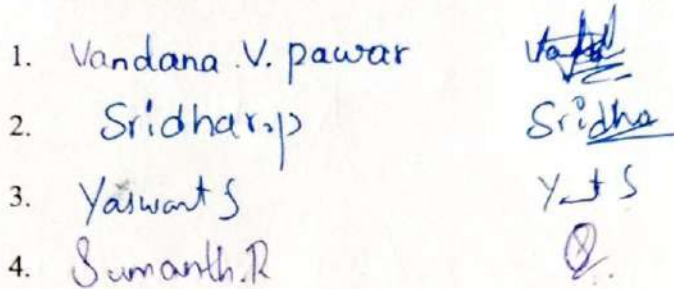 1. Vandana .V. pawar
2. Sridhar.p Sridha
3. Yaswant S Y_t S
4. Sumanth.R